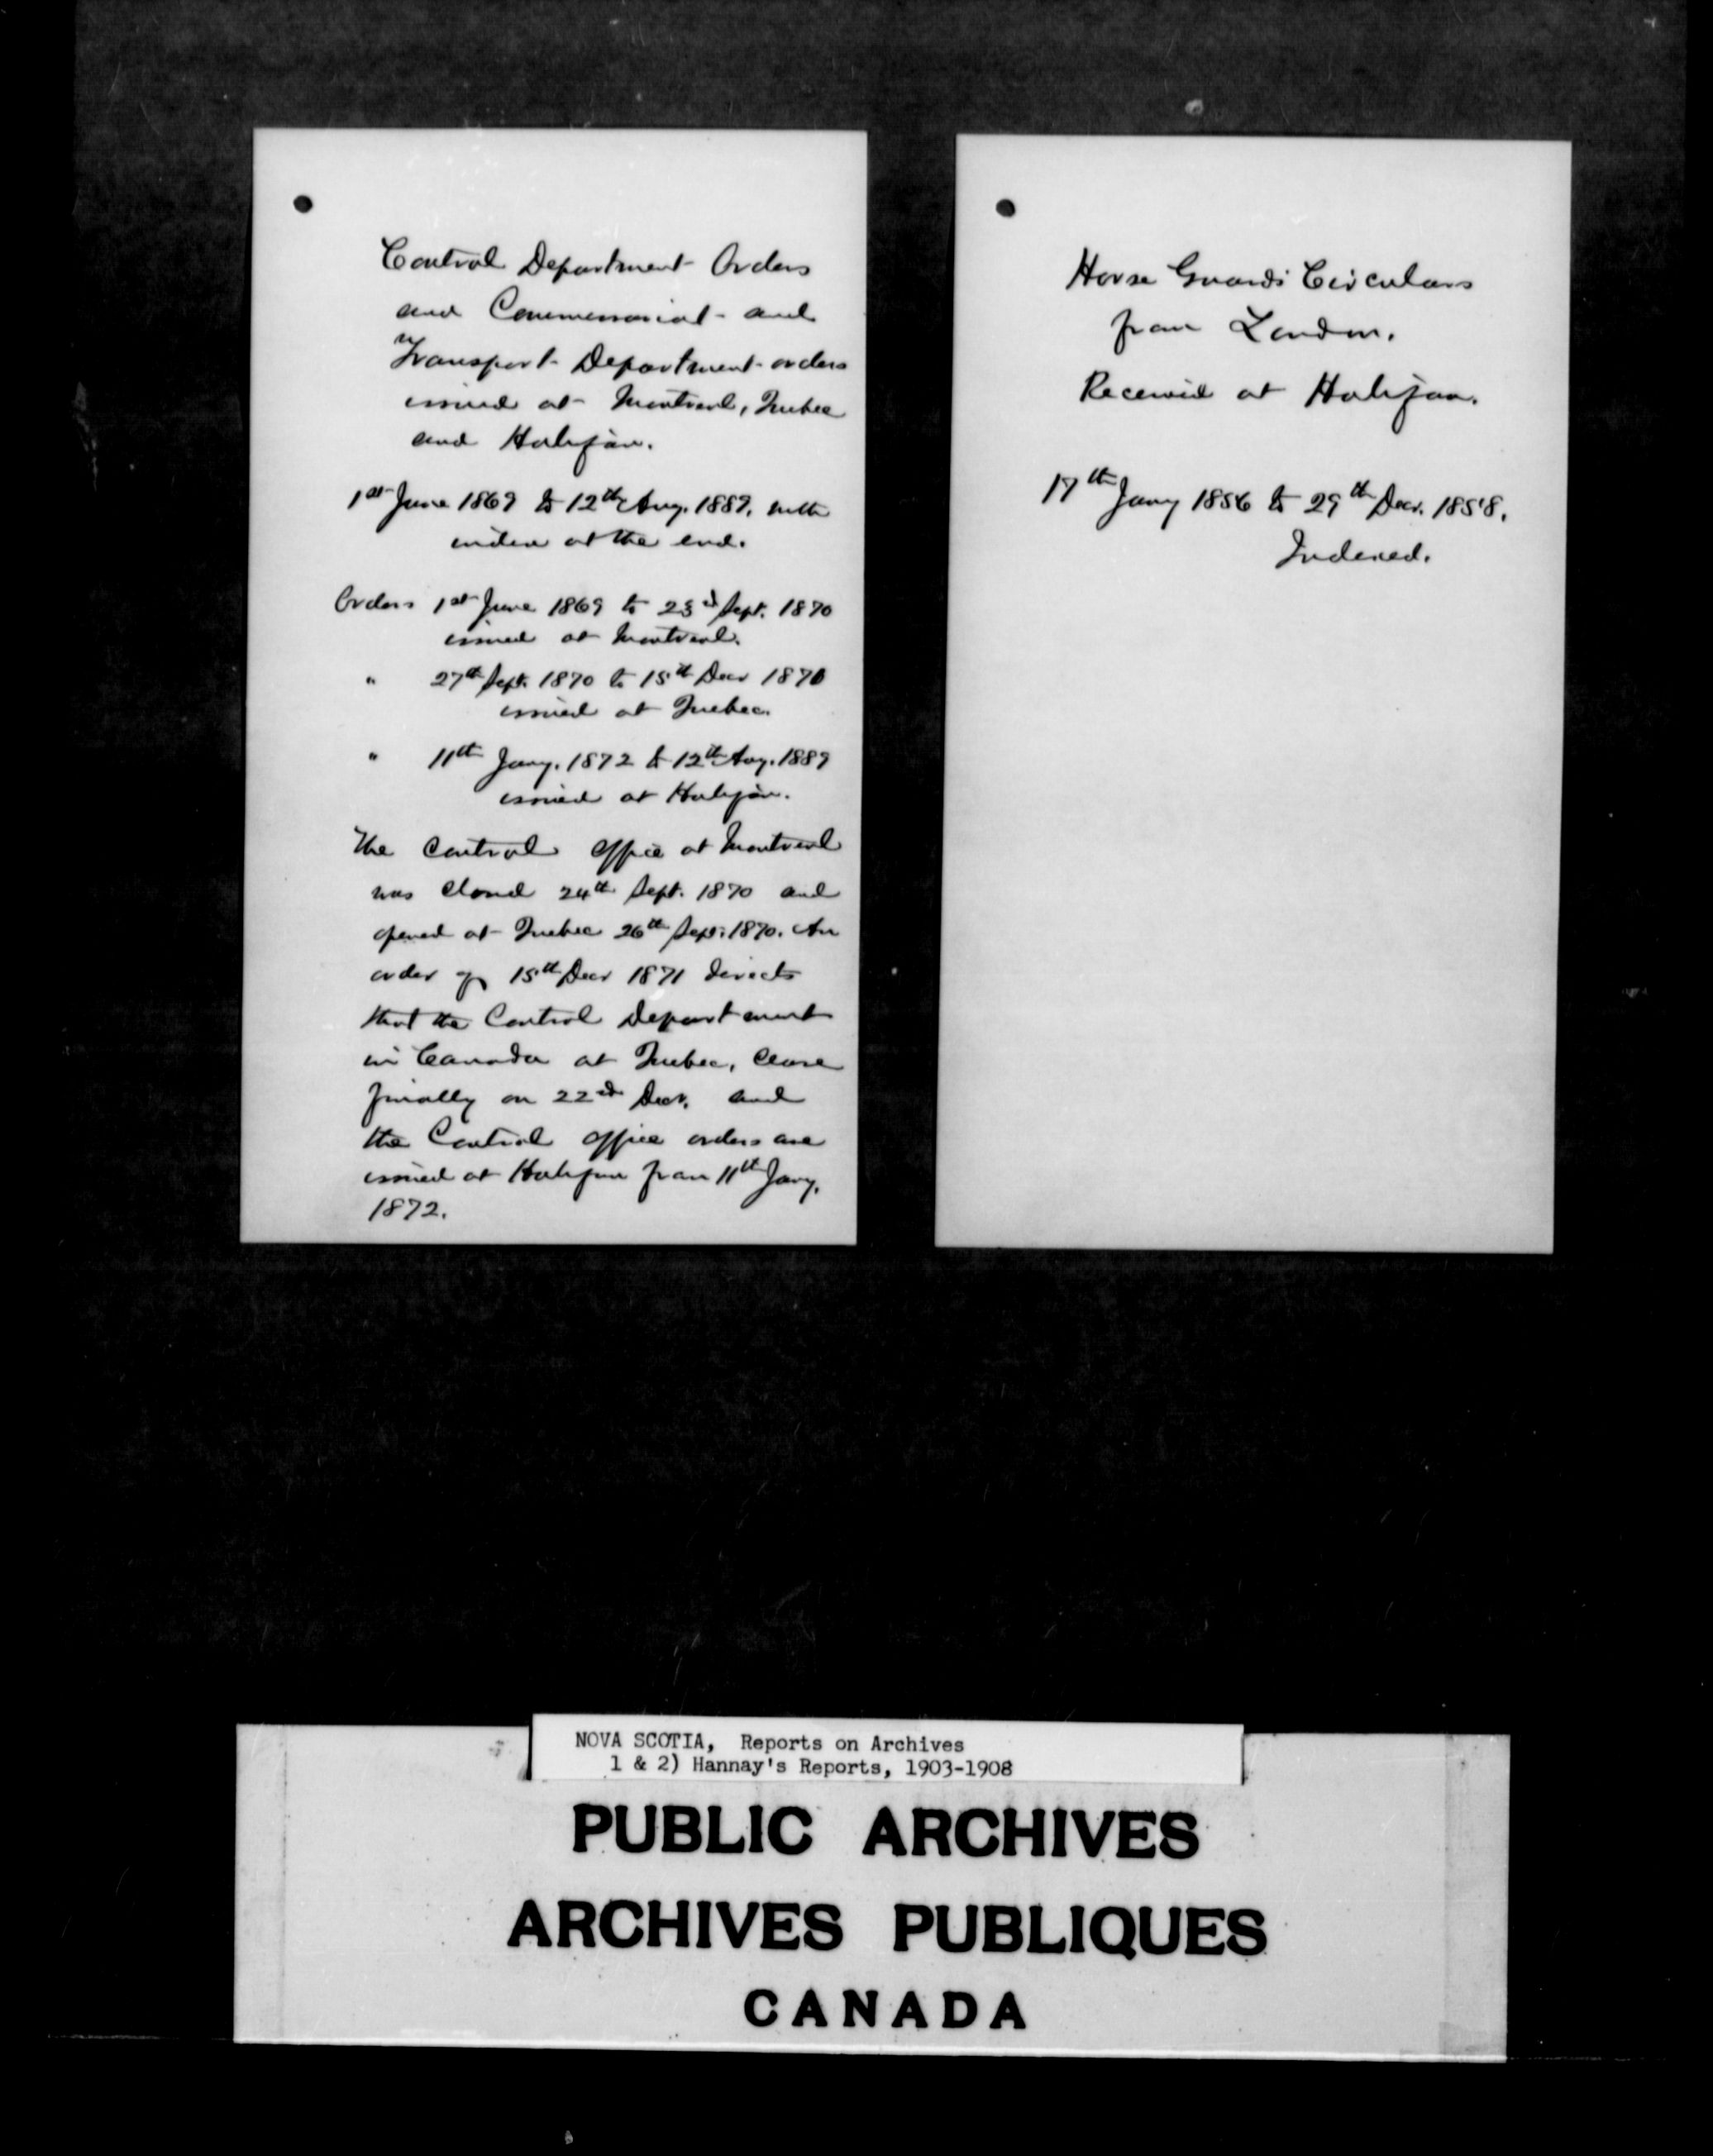 Control Department Orders
and Commissariat and
Transport Department orders
issued at Montreal, Quebec
and Halifax.
1st June 1869 to 12th Aug. 1889, with
index at the end.
Orders 1st June 1869 to 23d Sept. 1870
issued at Montreal.
" 27th Sept. 1870 to 15th Decr 1871
issued at Quebec.
" 11th Jany. 1872 to 12th Aug. 1889
issued at Halifax.
The Control Office at Montreal
was closed 24th Sept. 1870 and
opened at Quebec 26th Sept. 1870. An
order of 15th Decr 1871 directs
that the Control Department
in Canada at Quebec, cease
finally on 22nd Decr. and
the Control Office orders are
issued at Halifax from 11th Jany.
1872.
Horse Guards Circulars
from London.
Received at Halifax.
17th Jany 1856 to 29th Decr. 1858.
Indexed.
NOVA SCOTIA, Reports on Archives
1 & 2) Hannay's Reports, 1903-1908
PUBLIC ARCHIVES
ARCHIVES PUBLIQUES
CANADA